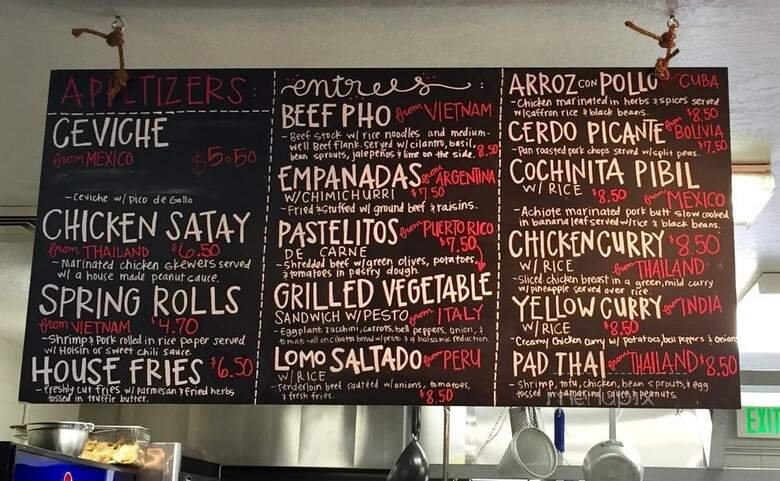 APPETIZERS:
CEVICHE
from MEXICO $5.50
-Ceviche w/ Pico de Gallo
CHICKEN SATAY
from THAILAND $6.50
-Marinated chicken skewers served
w/ a house made peanut sauce.
SPRING ROLLS
from VIETNAM $4.70
-Shrimp & Pork rolled in rice paper served
w/ Hoisin or sweet chili sauce
HOUSE FRIES $6.50
-freshly cut fries w/ parmesan & fried herbs
tossed in truffle butter.
entrees:
BEEF PHO from VIETNAM
-Beef stock w/ rice noodles and medium-
well Beef flank. Served w/ cilantro, basil,
bean sprouts, jalepeños & lime on the side. 8.50
EMPANADAS from ARGENTINA
W/ CHIMICHURRI $7.50
-Fried & Stuffed w/ ground beef & raisins.
PASTELITOS from PUERTO RICO
DE CARNE $7.50
-Shredded beef w/ green olives, potatoes,
& tomatoes in pastry dough.
GRILLED VEGETABLE
SANDWICH W/ PESTO from ITALY
-Eggplant, zucchini, carrots, bell peppers, onion, &
tomato-all on ciabatta bread w/ pesto & a balsamic reduction.
LOMO SALTADO from PERU
W/ RICE
-Tenderloin beef sautéed w/ onions, tomatoes,
& fresh fries. $8.50
ARROZ CON POLLO CUBA
-Chicken marinated in herbs & spices served
w/ saffron rice & black beans. $8.50
CERDO PICANTE from BOLIVIA
-Pan roasted pork chops served w/ split peas. $7.50
COCHINITA PIBIL
W/ RICE $8.50 from MEXICO
-Achiote marinated pork butt slow cooked
in banana leaf served w/ rice & black beans.
CHICKEN CURRY $8.50
W/ RICE from THAILAND
-Sliced chicken breast in a green, mild curry
w/ pineapple served over rice.
YELLOW CURRY from INDIA
W/ RICE $8.50
-Creamy Chicken Curry w/ potatoes, bell peppers & onions
PAD THAI from THAILAND $8.50
-Shrimp, tofu, chicken, bean sprouts, & egg
tossed in tamarind sauce & peanuts.
menupix
EXIT